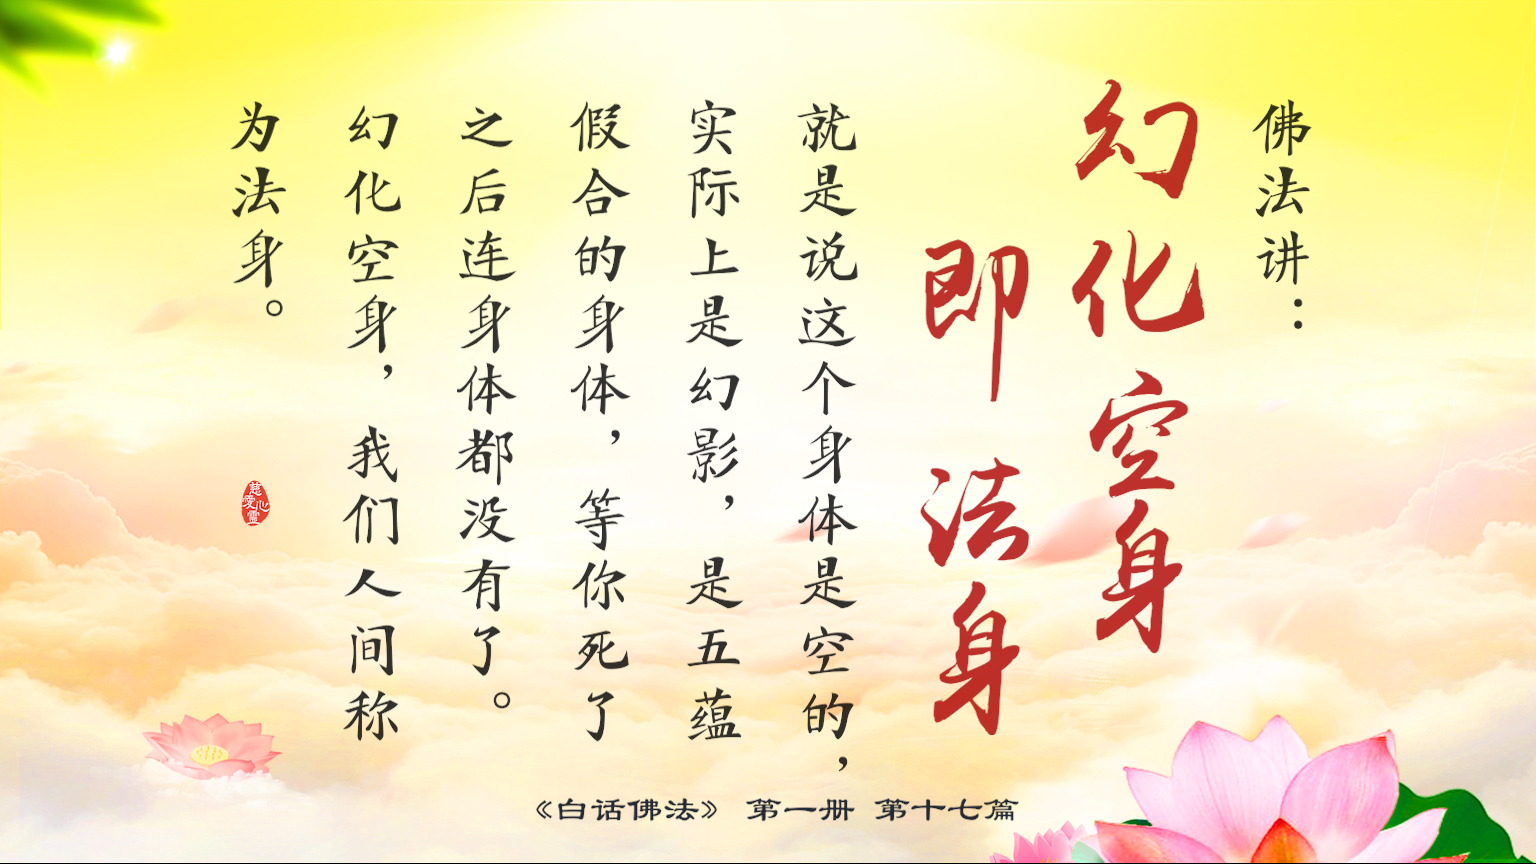 佛法讲：
幻化空身
即法身
就是说这个身体是空的，
实际上是幻影，是五蕴
假合的身体，等你死了
之后连身体都没有了。
幻化空身，我们人间称
为法身。
慈心
愛靈
《白话佛法》 第一册 第十七篇